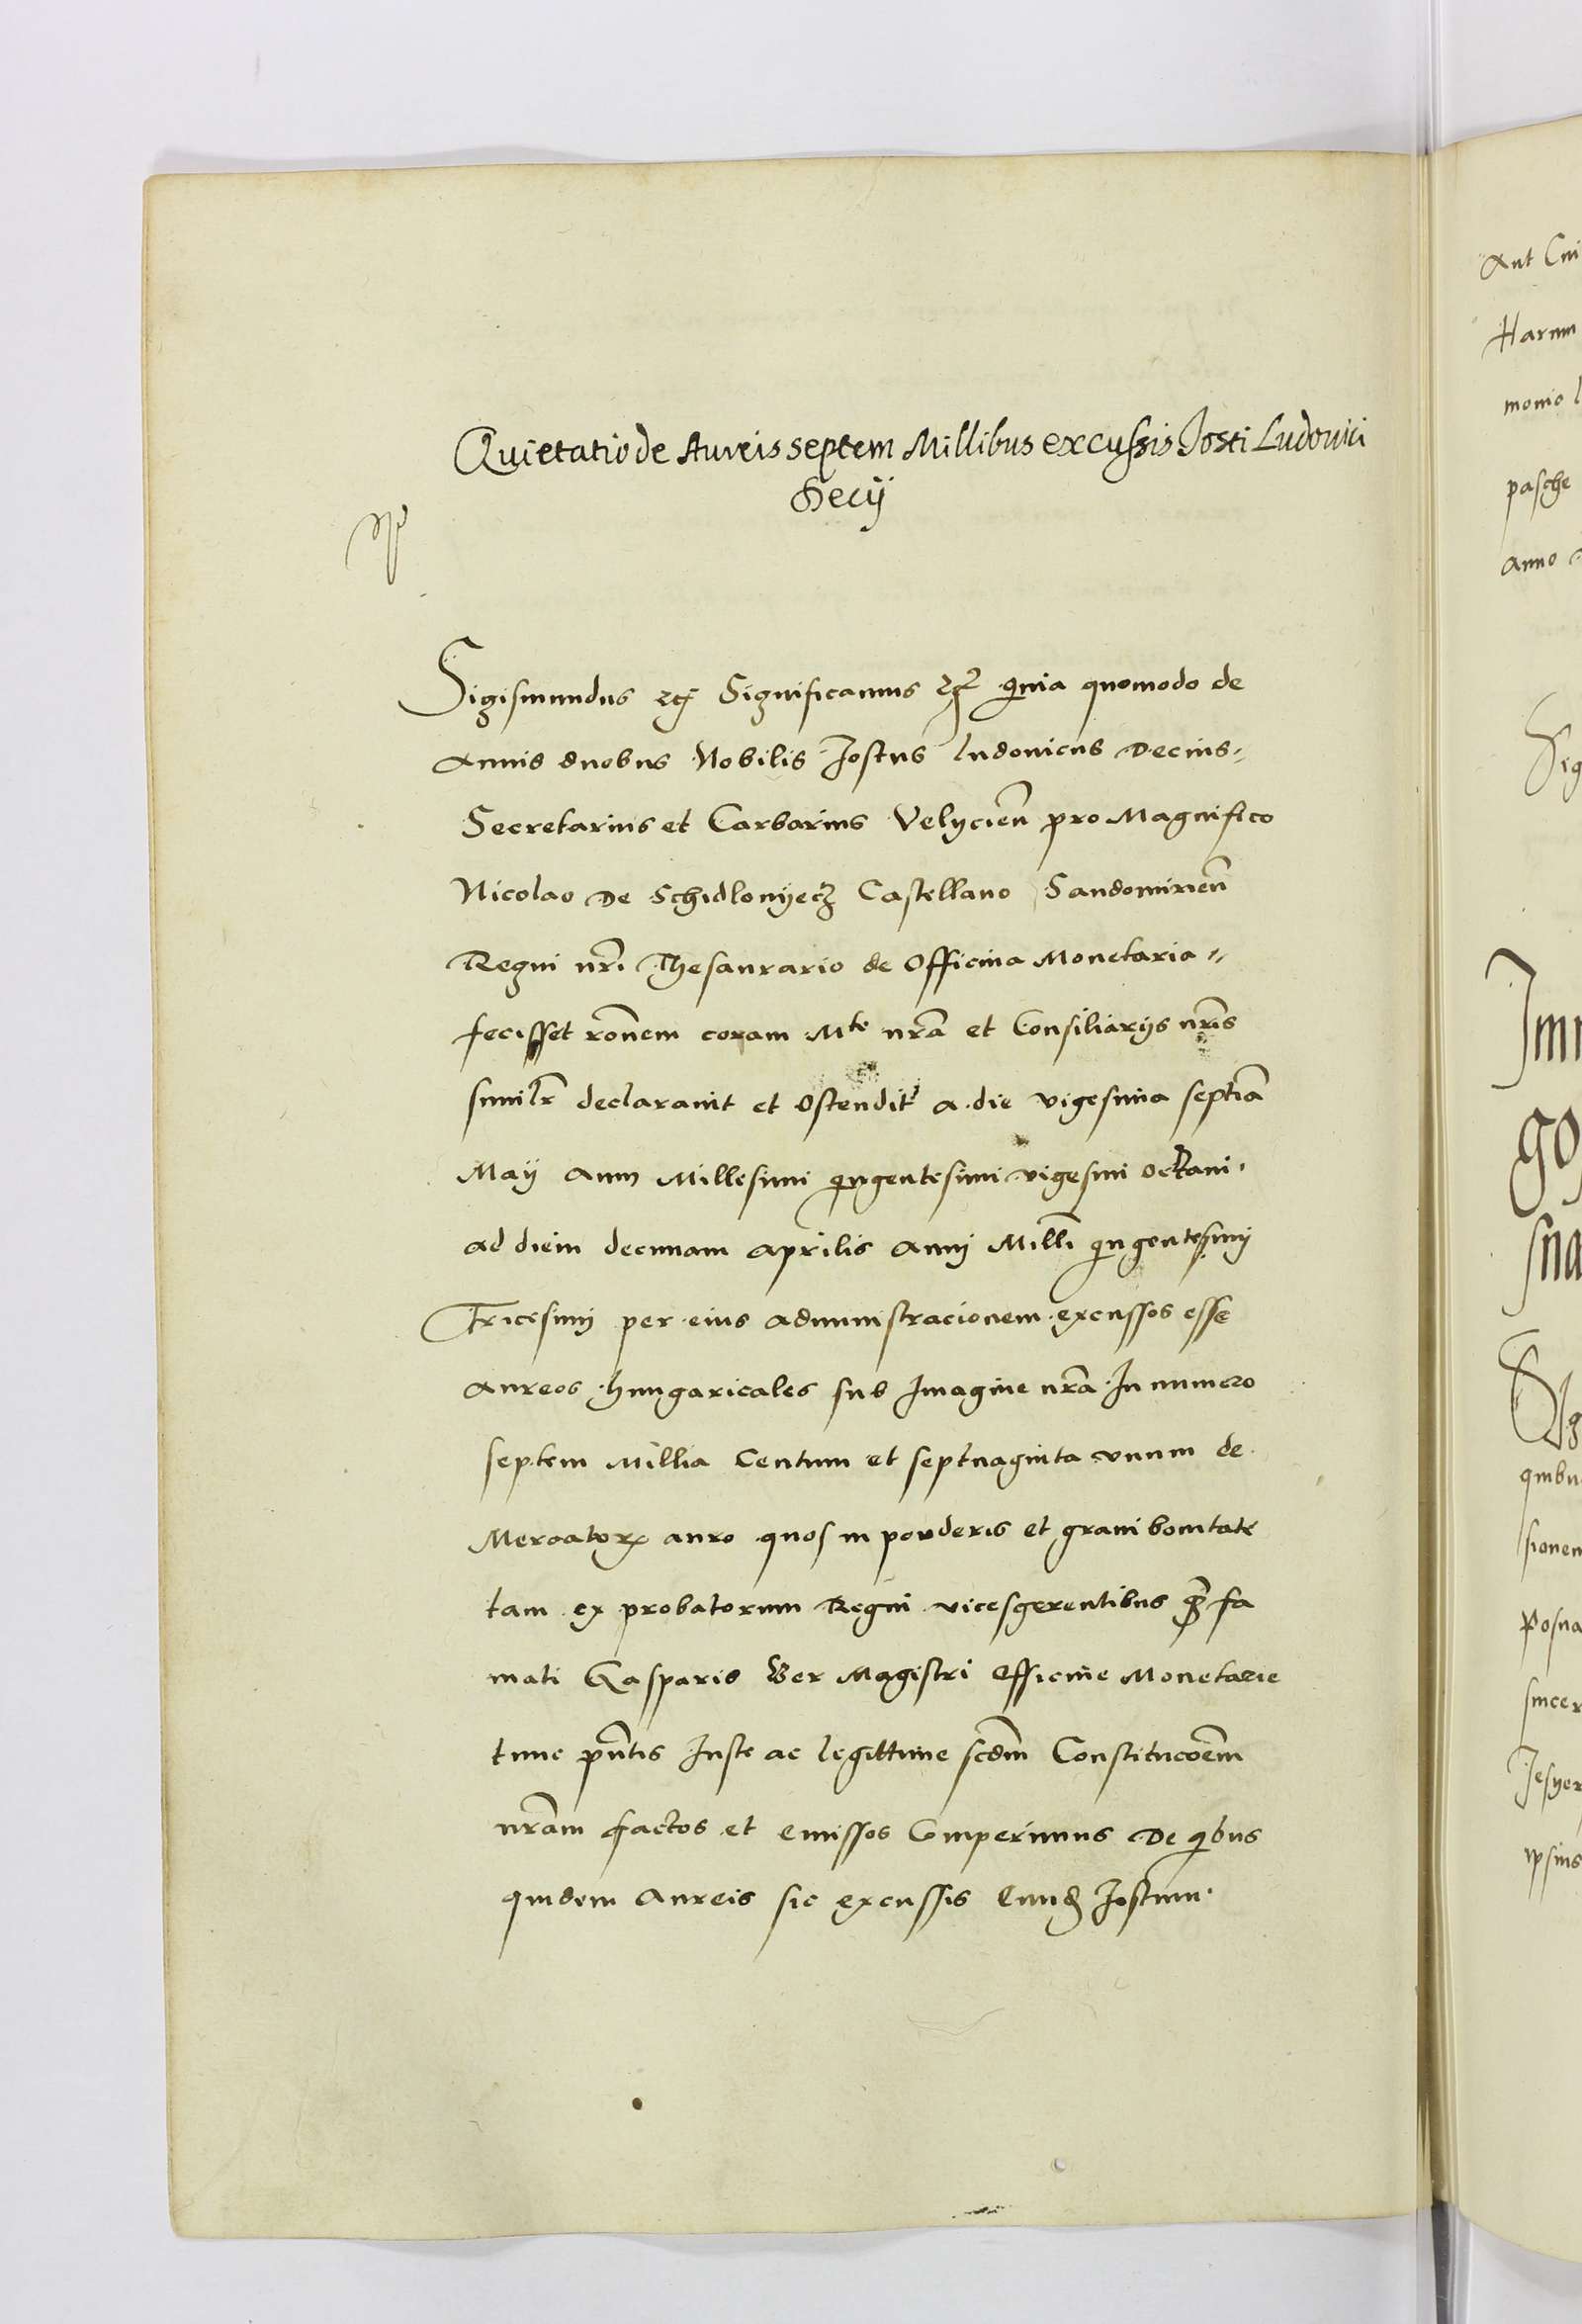 Quietatio de Aureis septem Millibus excussis Josti Ludovici
Decij
Sigismundus etc Significamus etc quia quomodo de
Annis duobus Nobilis Jostus ludovicus Decius
Secretarius et Carbarius Velycien̄ pro Magnifico
Nicolao De Schidlovyecz Castellano Sandomirien̄
Regni nr̄i Thesaurario de Officina Monetaria
fecisset rōnem coram Mte nrā et Consiliarijs nr̄is
simil̄r declaravit et Ostendit a die vigesima septīa
Maij Anni Millesimi quingentesimi vigesimi octavi
ad diem decimam aprilis Anni Milli quingentesimi
Tricesimi per eius administracionem excussos esse
Aureos hungaricales sub Imagine nrā In numero
septem Millia Centum et septuaginta unum de
Mercatorum auro quos in ponderis et grani bonitate
tam ex probatorum Regni vicesgerentibus quam fa
mati Gasparis Ber Magistri Officine Monetarie
tunc pn̄tis Juste ac legittime scdm̄ Constitucōem
nrām factos et emissos Comperimus De quibus
quidem Aureis sic excussis Eund Jostum
Aut
Harum
monio
pasche
Anno
Sig
go
sna
quibu
sionem
Posna
sincer
ipsius